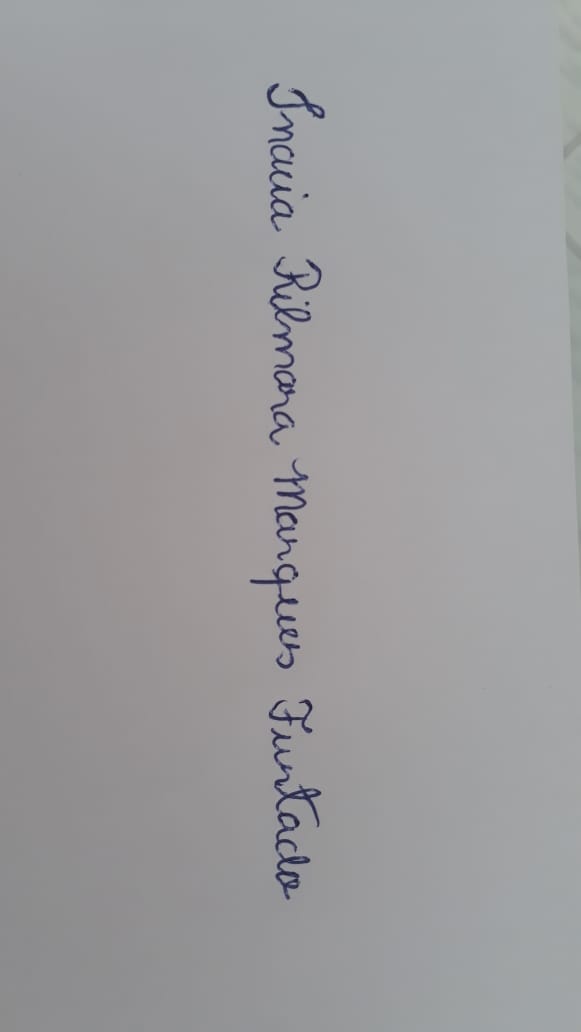 Inacia Rilmara Marques Furtado